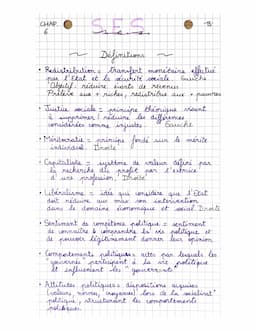 CHAP. 6
S.E.S
-B-
Définitions
• Redistribution = transfert monétaire effectué
par l'Etat et la sécurité sociale. Gauche
Objectif: réduire écarts de revenus
Prélève aux + riches, redistribue aux + pauvres
• Justice sociale = principe théorique visant
à supprimer / réduire les différences
considérées comme injustes. Gauche
• Méritocratie = principe fondé sur le mérite
individuel. Droite
• Capitaliste = système de valeur défini par
la recherche du profit par l'exercice
d'une profession. Droite
• Libéralisme = idée qui considère que l'Etat
doit réduire au max son intervention
dans le domaine économique et social. Droite
• Sentiment de compétence politique = sentiment
de connaître & comprendre la vie politique et
de pouvoir légitimement donner leur opinion.
• Comportements politiques = actes par lesquels les
gouvernés participent à la vie politique
et influencent les "gouvernants"
• Attitudes politiques = dispositions acquises
(valeurs, normes, croyances) lors de la socialisat°
politique, structurant les comportements
politiques.